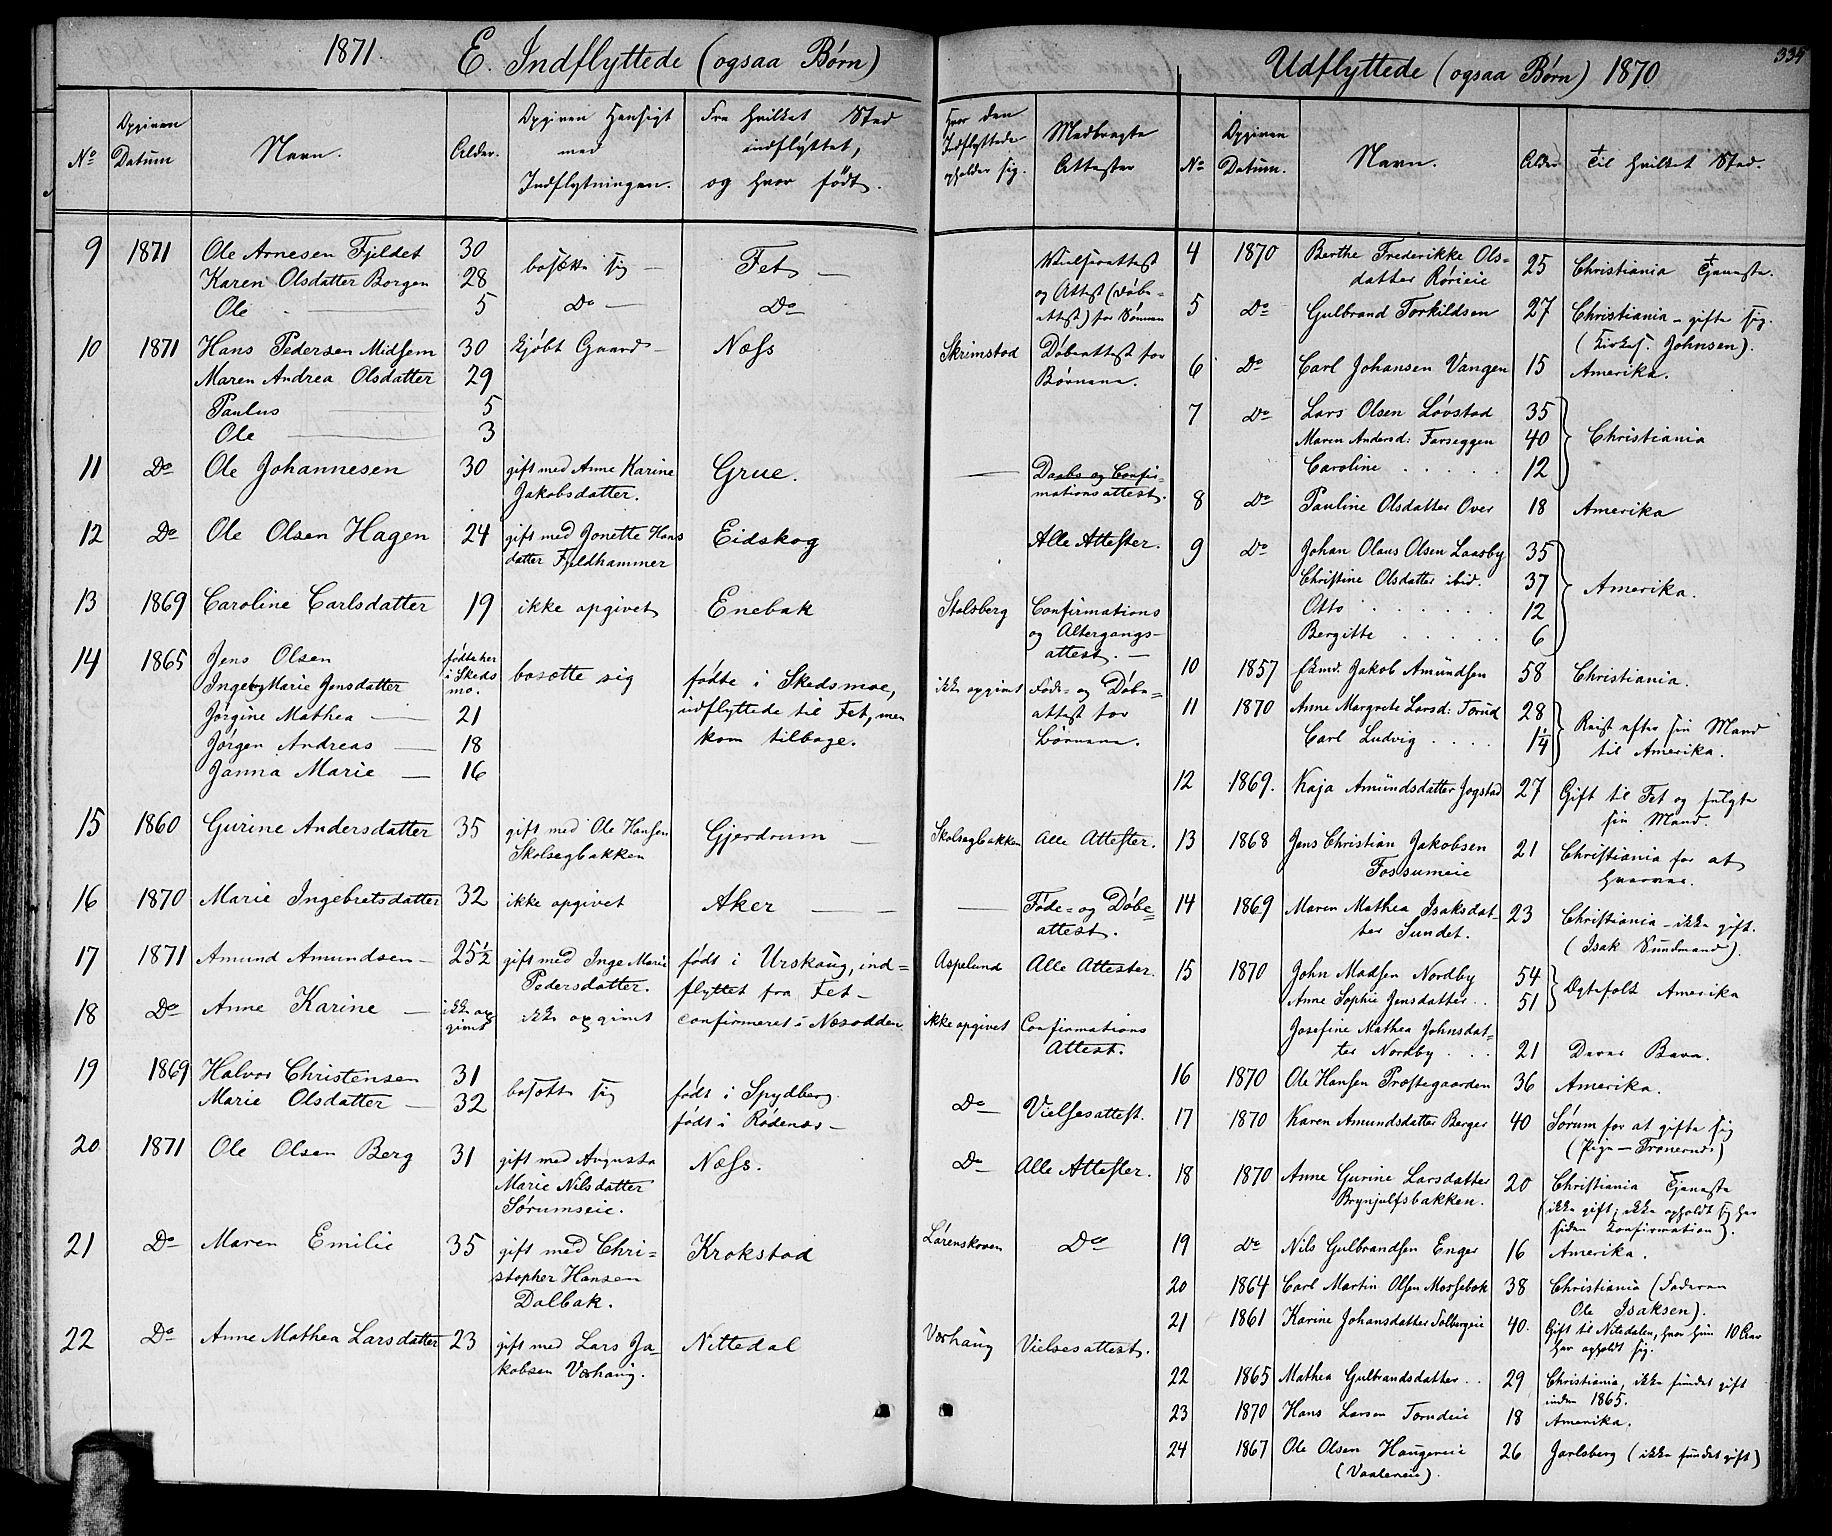 1871. E. Indflyttede (ogsaa Børn)
No
Opgiven Datum
Navn.
Alder.
Opgiven Hensigt med Indflytningen.
Fra hvilket Sted indflyttet, og hvor født.
Hvor den Indflyttede opholder sig.
Medbragte Attester
9 1871 Ole Arnesen Fjeldet 30 bosætte sig — Fet — Vielsesattest
Karen Olsdatter Borgen 28 og Attest (Døbe-
Ole 5 Do — Do attest) for Sønnen
10 1871 Hans Pedersen Midsem 30 kjøbt Gaard — Næss Skrimstad Døbeattest for
Maren Andrea Olsdatter 29 Børnene.
Paulus 5
Ole 3
11 Do Ole Johannesen 30 gift med Anne Karine Grue. — Daabs og Confir-
Jakobsdatter. mationsattest.
12 Do Ole Olsen Hagen 24 gift med Jonette Hans Eidskog Alle Attester.
datter Fjeldhammer
13 1869 Caroline Carlsdatter 19 ikke opgivet Enebak Stolsberg Confirmations
og Altergangs-
attest. —
14 1865 Jens Olsen fødte her i Skedsmo. bosætte sig fødte i Skedsmoe, ikke opgivet Føde- og Døbe-
Ingeb. Marie Jensdatter udflyttede til Fet, men attest for
Jørgine Mathea — 21 kom tilbage. Børnene.
Jørgen Andreas — 18
Janna Marie — 16
15 1860 Gurine Andersdatter 35 gift med Ole Hansen Gjerdrum — Skolsegbakken Alle Attester.
Skolsegbakken
16 1870 Marie Ingebretsdatter 32 ikke opgivet Aker — — — Føde- og Døbe-
attest.
17 1871 Amund Amundsen — 25½ gift med Inge Marie født i Urskoug, ind- Aspelund Alle Attester.
Pedersdatter. flyttet fra Fet —
18 Do Anne Karine — ikke opgivet ikke opgivet confirmeret i Næsodden ikke opgivet Confirmations
Attest.
19 1869 Halvor Christensen 31 bosætte sig født i Spydberg. Do Vielsesattest.
Marie Olsdatter — 32 født i Rødenæs —
20 1871 Ole Olsen Berg 31 gift med Augusta Næss. Do Alle Attester.
Marie Nilsdatter
Sørumseie.
21 Do Maren Emilie 35 gift med Chri- Krokstad Lørenskoven Do
stopher Hansen
Dalbak.
22 Do Anne Mathea Larsdatter 23 gift med Lars Ja- Nittedal Varhaug Vielsesattest.
kobsen Varhaug.
Udflyttede (ogsaa Børn) 1870. 334
No
Opgiven Datum.
Navn.
Alder
Til hvilket Sted.
4 1870 Berthe Frederikke Ols- 25 Christiania Tjeneste.
datter Rørieie
5 Do Gulbrand Torkildsen 27 Christiania — gifte sig.
(Kirkes. Johnsen).
6 Do Carl Johansen Vangen 15 Amerika.
7 Do Lars Olsen Løvstad 35 Christiania
Maren Andersd: Farseggen 40
Caroline 12
8 Do Pauline Olsdatter Over 18 Amerika
9 Do Johan Olaus Olsen Laasby 35 Amerika.
Christine Olsdatter ibid. 37
Otto 12
Bergitte 6
10 1857 Jakob Amundsen 58 Christiania.
11 1870 Anne Margrete Larsd: Torud 28 Reist efter sin Mand
Carl Ludvig 1¼ til Amerika.
12 1869. Kaja Amundsdatter Jogstad 27 Gift til Fet og fulgte
sin Mand.
13 1868 Jens Christian Jakobsen 21 Christiania for at
Fossumeie
14 1869 Maren Mathea Isaksdat- 23 Christiania — ikke gift.
ter Sundet. (Isak Sundmand).
15 1870 John Madsen Nordby 54 Ægtefolk Amerika
Anne Sophie Jensdatter 51
Josefine Mathea Johnsdat-
ter Nordby 21 Deres Barn.
16 1870 Ole Hansen Præstegaarden 36 Amerika.
17 1870 Karen Amundsdatter Berger 40 Sørum for at gifte sig
(Pige — )
18 1870 Anne Gurine Larsdatter 20 Christiania Tjeneste
Brynjulfsbakken. (ikke gift, ikke opholdt sig her
siden Konfirmation).
19 Do Nils Gulbrandsen Enger 16 Amerika.
20 1864 Carl Martin Olsen Mossebak 38 Christiania (Faderen
Ole Isaksen).
21 1861 Karine Johansdatter Solbergeie 40. Gift til Nitedalen, hvor hun 10 Aar
har opholdt sig.
22 1865 Mathea Gulbrandsdatter 29 Christiania, ikke fundet gift
inden 1865.
23 1870 Hans Larsen Torudeie 18 Amerika.
24 1867 Ole Olsen Haugereie 26 Jarlsberg (ikke fundet gift)
(Vaalereie).